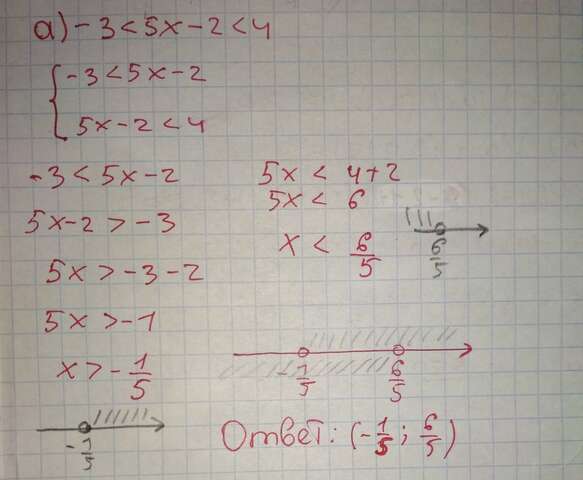 а) -3 < 5x - 2 < 4
{ -3 < 5x - 2
5x - 2 < 4
-3 < 5x - 2
5x - 2 > -3
5x > -3 - 2
5x > -1
x > - 1/5
- 1/5
5x < 4 + 2
5x < 6
x < 6/5
6/5
1/5 6/5
Ответ: (- 1/5 ; 6/5)